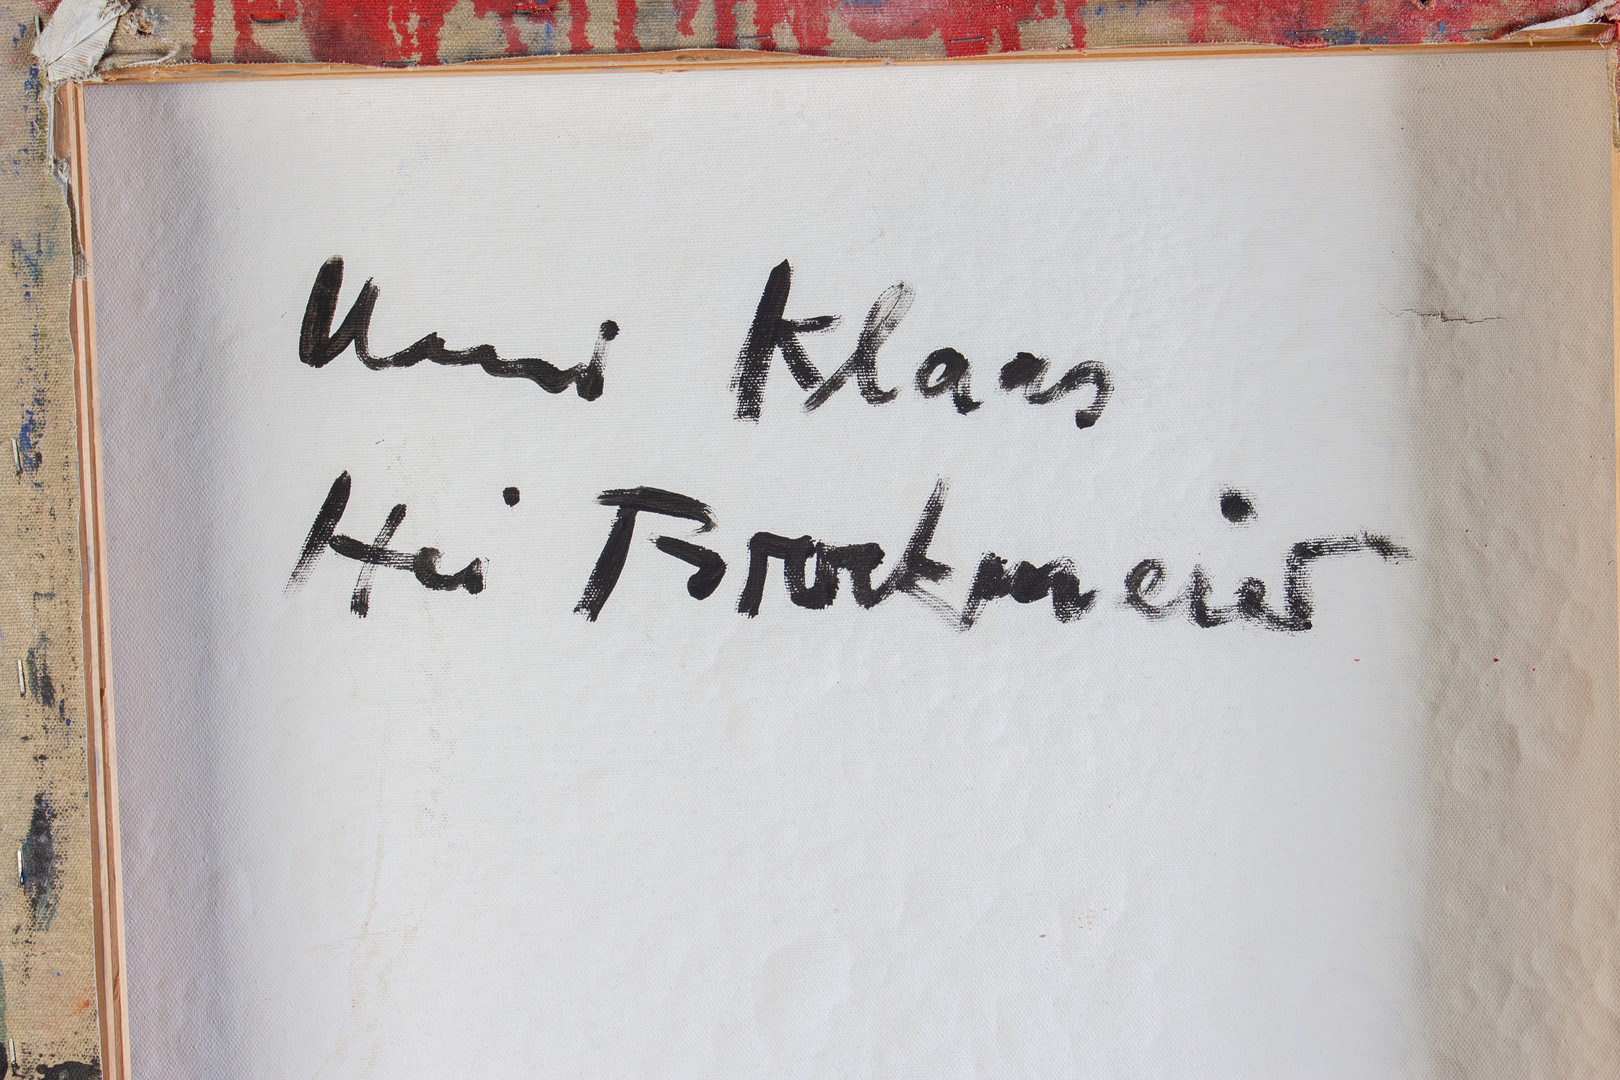 Klaas
Hei Brockmeier